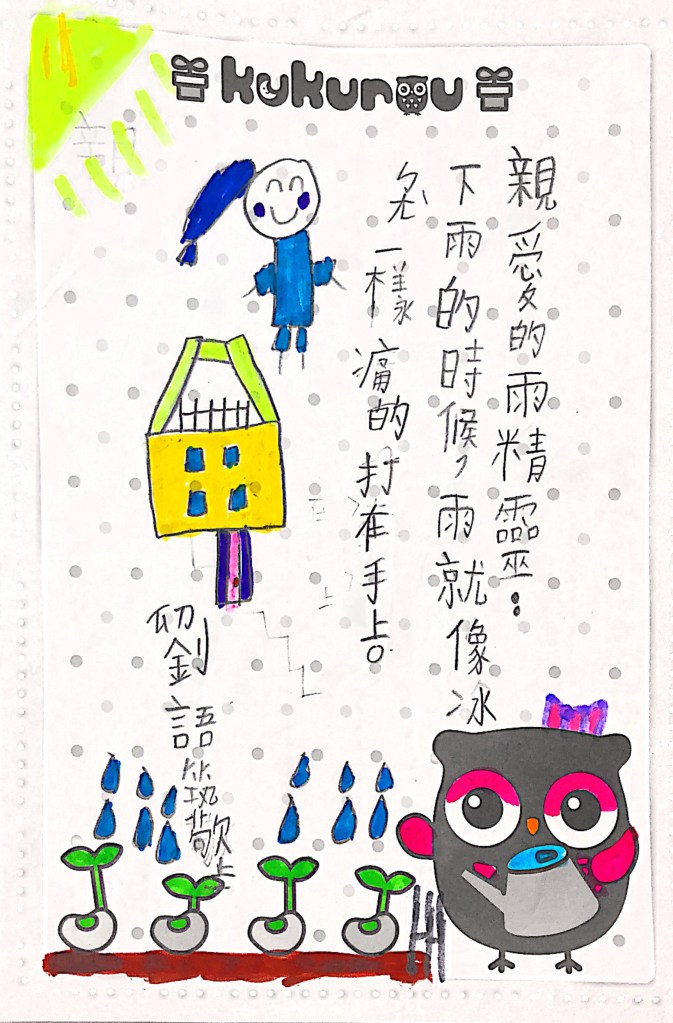 kukurou
親愛的雨精靈：
下雨的時候，雨就像冰
一樣痛的打在手上。
劉語筑敬上